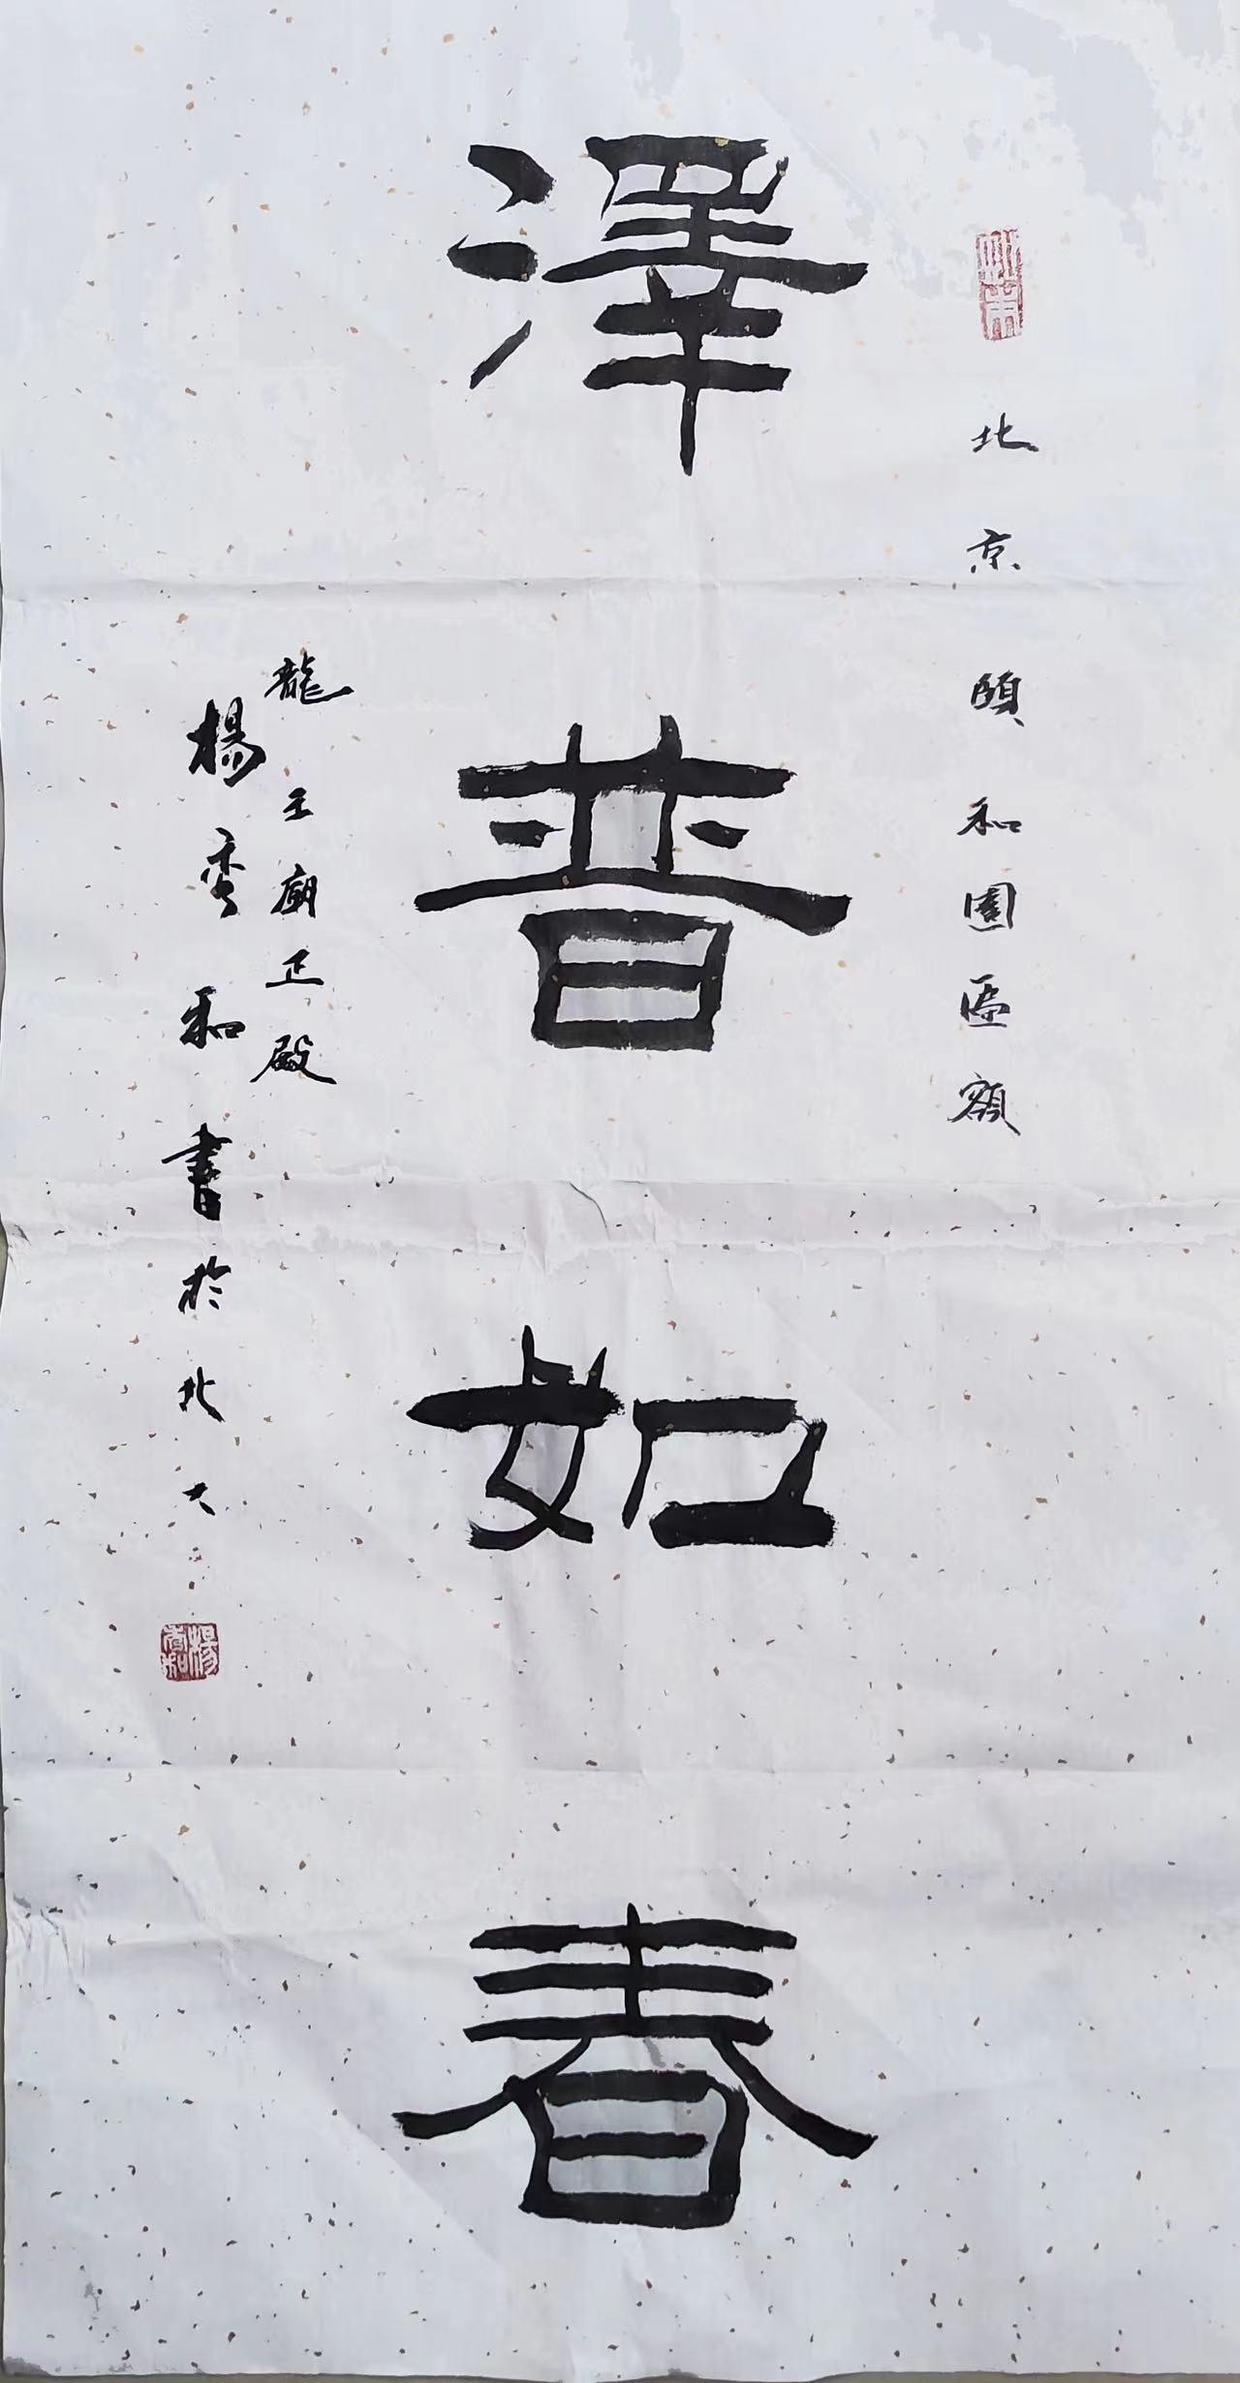 北京頤和園匾額
澤普如春
龍王廟正殿
楊秀和書於北大
楊秀和